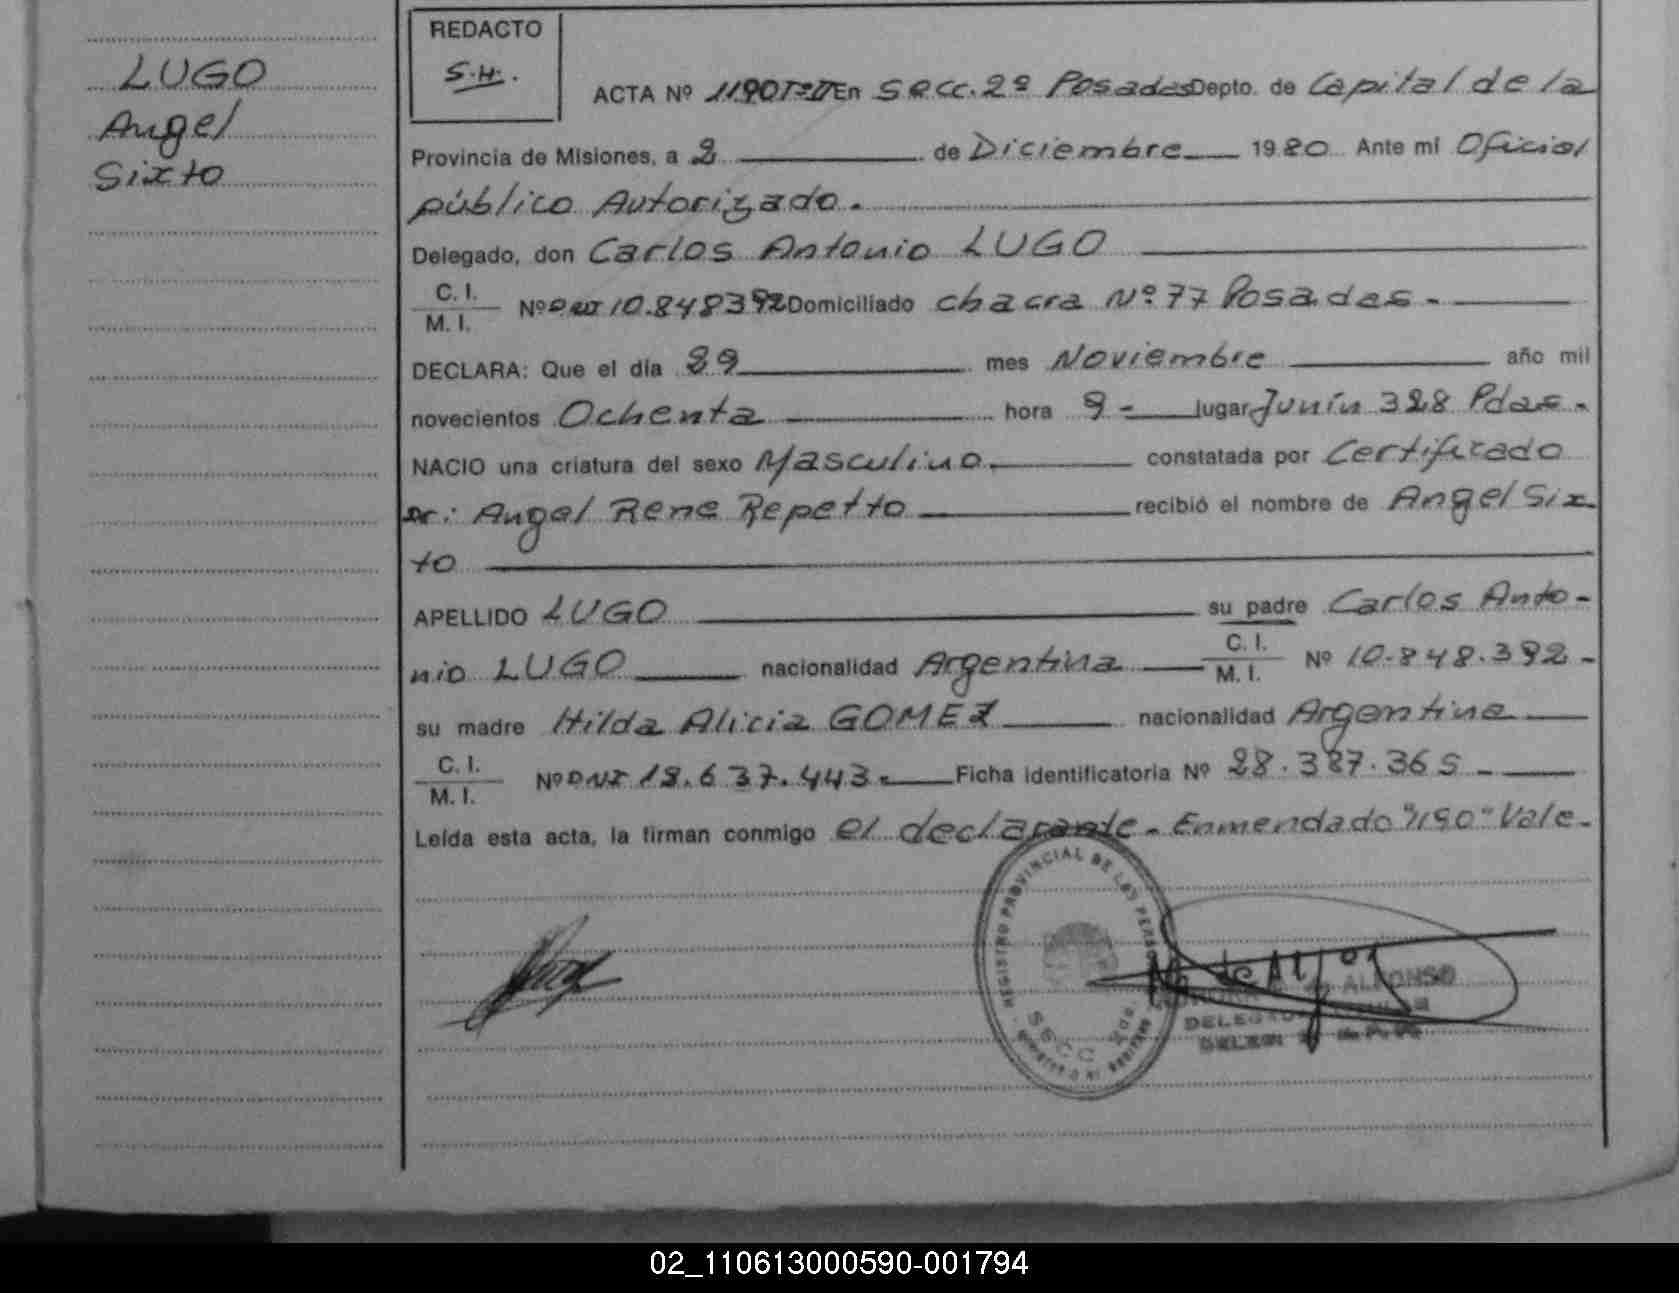 LUGO
Angel
Sixto
REDACTO
S.H.
ACTA Nº 1190 Tº II En Secc. 2º Posadas Depto. de Capital de la
Provincia de Misiones, a 2 de Diciembre 1980 Ante mi Oficial
público Autorizado.
Delegado, don Carlos Antonio LUGO
C. I.
M. I.
Nº DNI 10.848392 Domiciliado chacra Nº 77 Posadas -
DECLARA: Que el día 29 mes Noviembre año mil
novecientos Ochenta hora 9 - lugar Junín 328 Pdas -
NACIO una criatura del sexo Masculino. constatada por Certificado
Dr: Angel Rene Repetto recibió el nombre de Angel Six
to
APELLIDO LUGO su padre Carlos Anto-
nio LUGO nacionalidad Argentina C. I. M. I. Nº 10.848.392 -
su madre Hilda Alicia GOMEZ nacionalidad Argentina
C. I.
M. I.
Nº DNI 13.637.443 - Ficha identificatoria Nº 28.387.365 -
Leída esta acta, la firman conmigo el declarante - Enmendado "1190" Vale -
REGISTRO PROVINCIAL DE LAS
SECC
ALFONSO
02_110613000590-001794